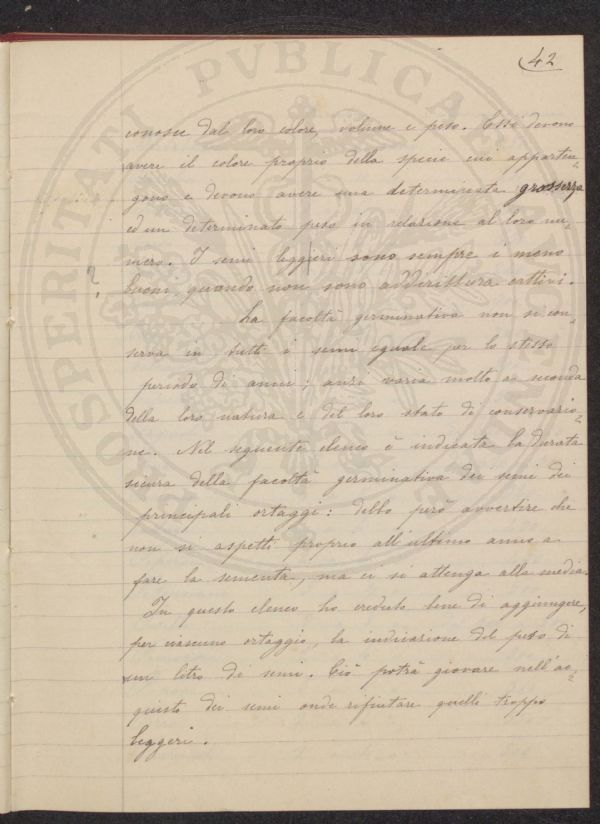 42
conosce dal loro colore, volume e peso. Essi devono
avere il colore proprio della specie cui apparten=
gono e devono avere una determinata grossezza
ed un determinato peso in relazione al loro nu=
mero. I semi leggieri sono sempre i meno
?
buoni, quando non sono addirittura cattivi.
La facoltà germinativa non si con=
serva in tutti i semi eguale per lo stesso
periodo di anni; anzi varia molto a seconda
della loro natura e del loro stato di conservazio=
ne. Nel seguente elenco è indicata la durata
sicura della facoltà germinativa dei semi dei
principali ortaggi: debbo però avvertire che
non si aspetti proprio all'ultimo anno a
fare la sementa, ma ci si attenga alla media.
In questo elenco ho creduto bene di aggiungere,
per ciascuno ortaggio, la indicazione del peso di
un litro di semi. Ciò potrà giovare nell'ac=
quisto dei semi onde rifiutare quelli troppo
leggeri.
PROSPERITATI PVBLICAE